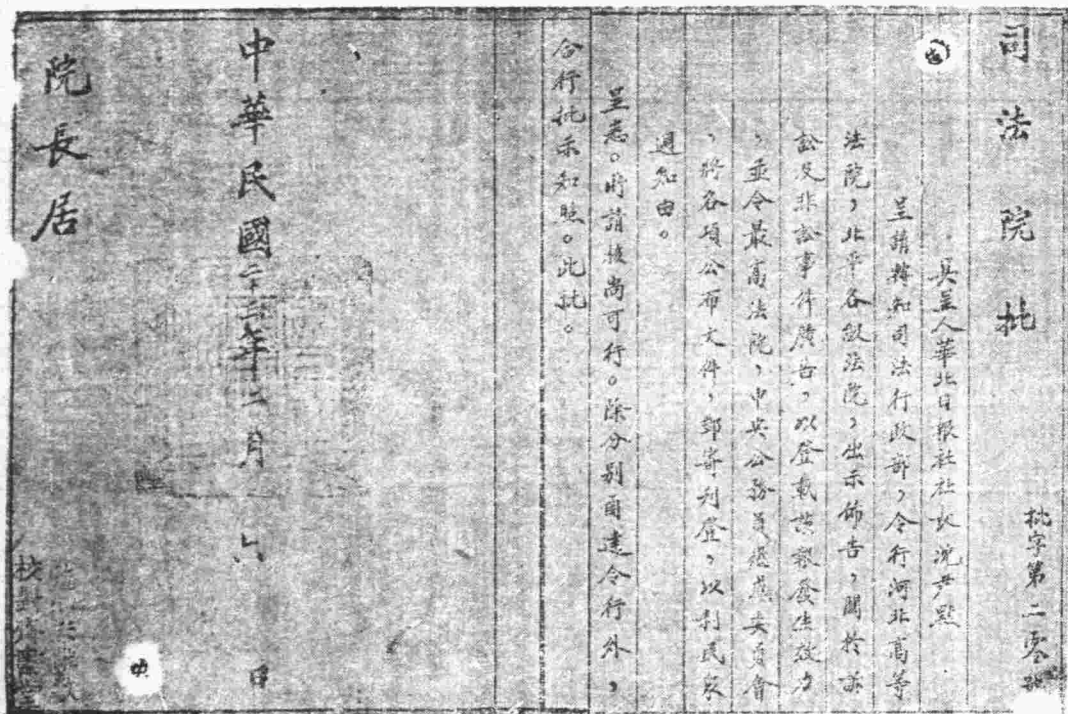 司法院批
批字第二零 號
具呈人華北日報社社長沈尹默
呈請轉知司法行政部,令行河北高等
法院,北平各級法院,出示佈告,關於訴
訟及非訟事件廣告,以登載該報發生效力
,並令最高法院,中央公務員懲戒委員會
,將各項公布文件,郵寄刊登,以利民眾
週知由。
呈悉。所請核尚可行。除分別函達令行外,
合行批示知照。此批。
中華民國二十 年十二月六日
院長居
校對